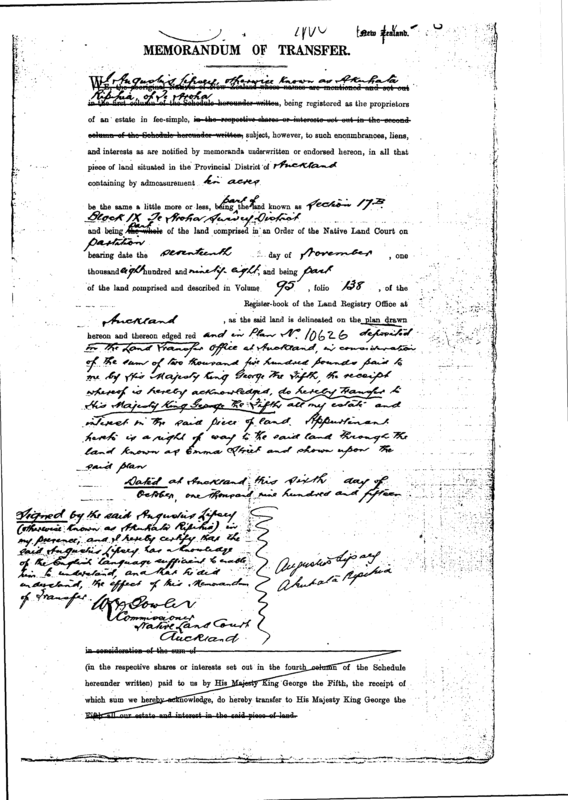 [New Zealand.
MEMORANDUM OF TRANSFER.
I, Augustus Lipsey, otherwise known as Akuhata
WE, the aboriginal natives of New Zealand whose names are mentioned and set out
Ripihia, of Te Aroha
in the first column of the Schedule hereunder written, being registered as the proprietors
of an estate in fee-simple, in the respective shares or interests set out in the second
column of the Schedule hereunder written, subject, however, to such encumbrances, liens,
and interests as are notified by memoranda underwritten or endorsed hereon, in all that
piece of land situated in the Provincial District of Auckland
containing by admeasurement ten acres
be the same a little more or less, being part of the land known as Section 17B
Block IX Te Aroha Survey District
and being part the whole of the land comprised in an Order of the Native Land Court on
partition
bearing date the seventeenth day of November, one
thousand eight hundred and ninety eight, and being part
of the land comprised and described in Volume 95, folio 138, of the
Register-book of the Land Registry Office at
Auckland, as the said land is delineated on the plan drawn
hereon and thereon edged red and in Plan No. 10626 deposited
in the Land Transfer Office at Auckland, in consideration
of the sum of two thousand five hundred pounds paid to
me by His Majesty King George the Fifth, the receipt
whereof is hereby acknowledged, do hereby transfer to
His Majesty King George the Fifth all my estate and
interest in the said piece of land. Appurtenant
hereto is a right of way to the said land through the
land known as Emma Street and shown upon the
said plan
Dated at Auckland this sixth day of
October, one thousand nine hundred and fifteen
Signed by the said Augustus Lipsey
(otherwise known as Akuhata Ripihia) in
my presence, and I hereby certify that the
said Augustus Lipsey has a knowledge
of the English language sufficient to enable
him to understand, and that he did
understand, the effect of this Memorandum
of Transfer.
Augustus Lipsey
Akuhata Ripihia
Commissioner
Native Land Court
Auckland
in consideration of the sum of
(in the respective shares or interests set out in the fourth column of the Schedule
hereunder written) paid to us by His Majesty King George the Fifth, the receipt of
which sum we hereby acknowledge, do hereby transfer to His Majesty King George the
Fifth all our estate and interest in the said piece of land.